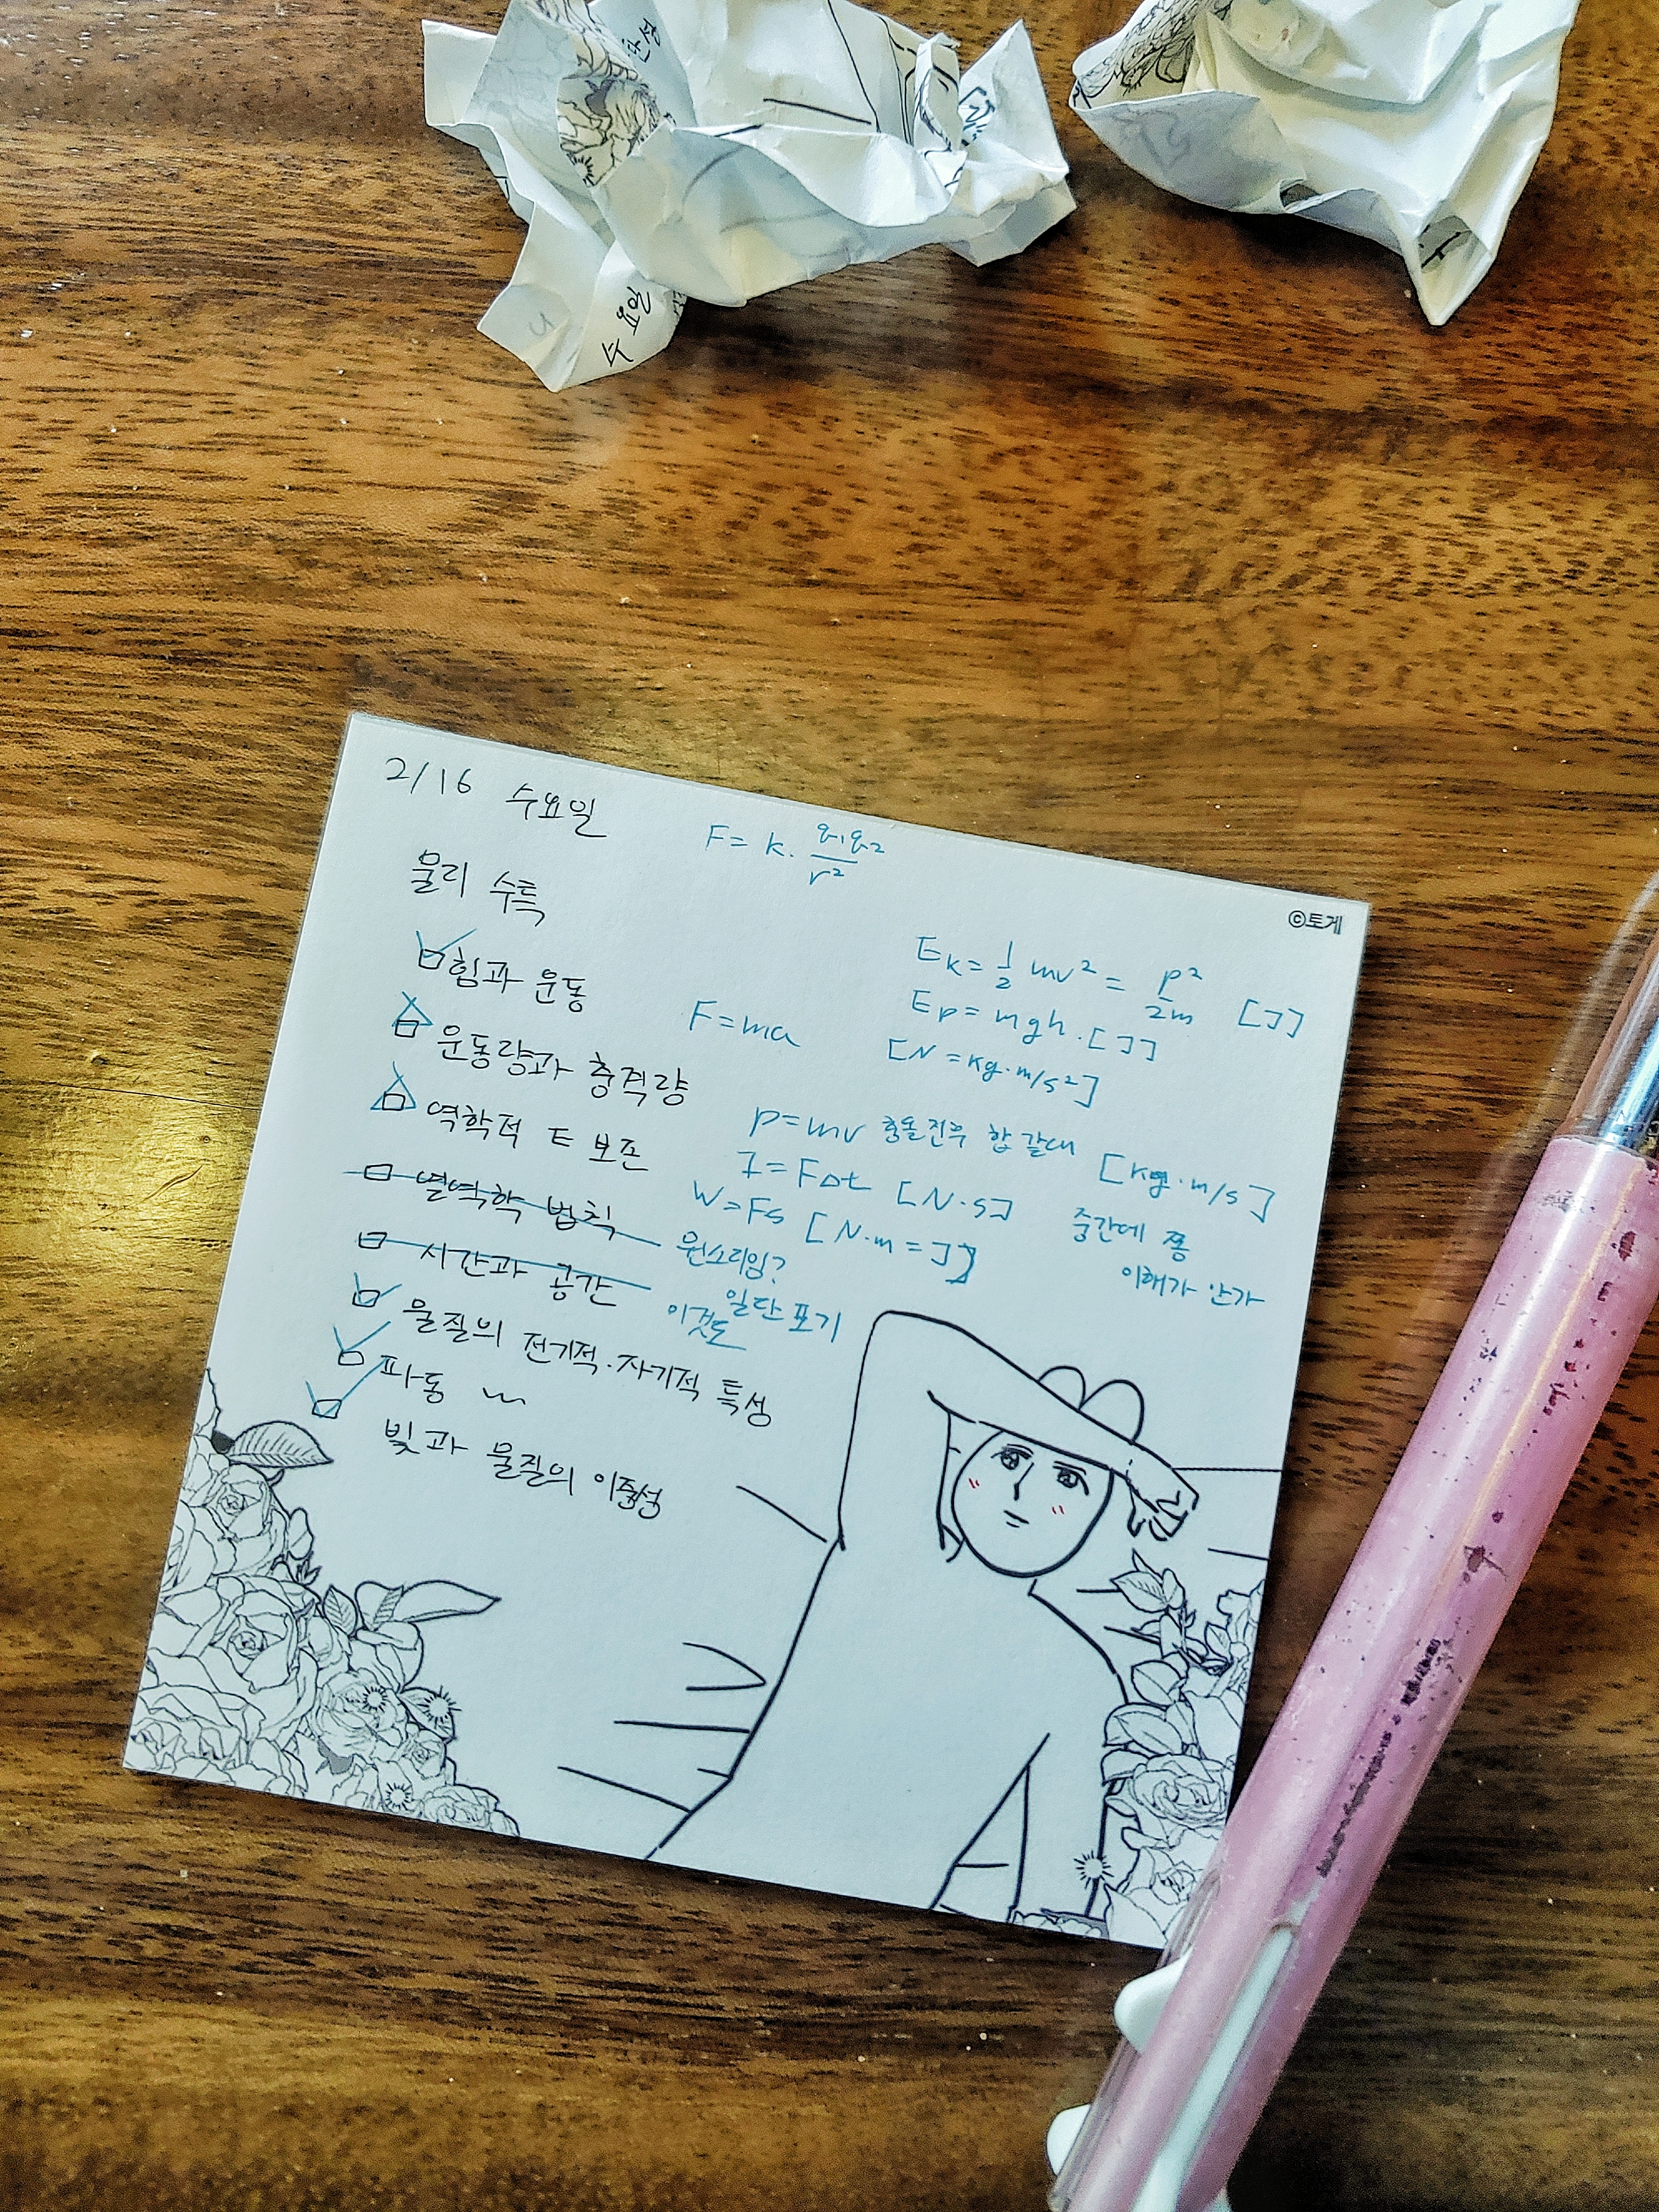 수요일
2/16 수요일
F = k · q₁q₂ / r²
©토게
물리 수특
힘과 운동
Eₖ = 1/2 mv² = p²/2m [J]
Eₚ = mgh · [J]
F = ma [N = kg·m/s²]
운동량과 충격량
p = mv 충돌전후 합 같대 [kg·m/s]
역학적 E 보존
I = FΔt [N·s]
W = Fs [N·m = J]
중간에 쫌
이해가 안가
열역학 법칙
뭔소리임?
일단 포기
시간과 공간
이것도
물질의 전기적·자기적 특성
파동
빛과 물질의 이중성